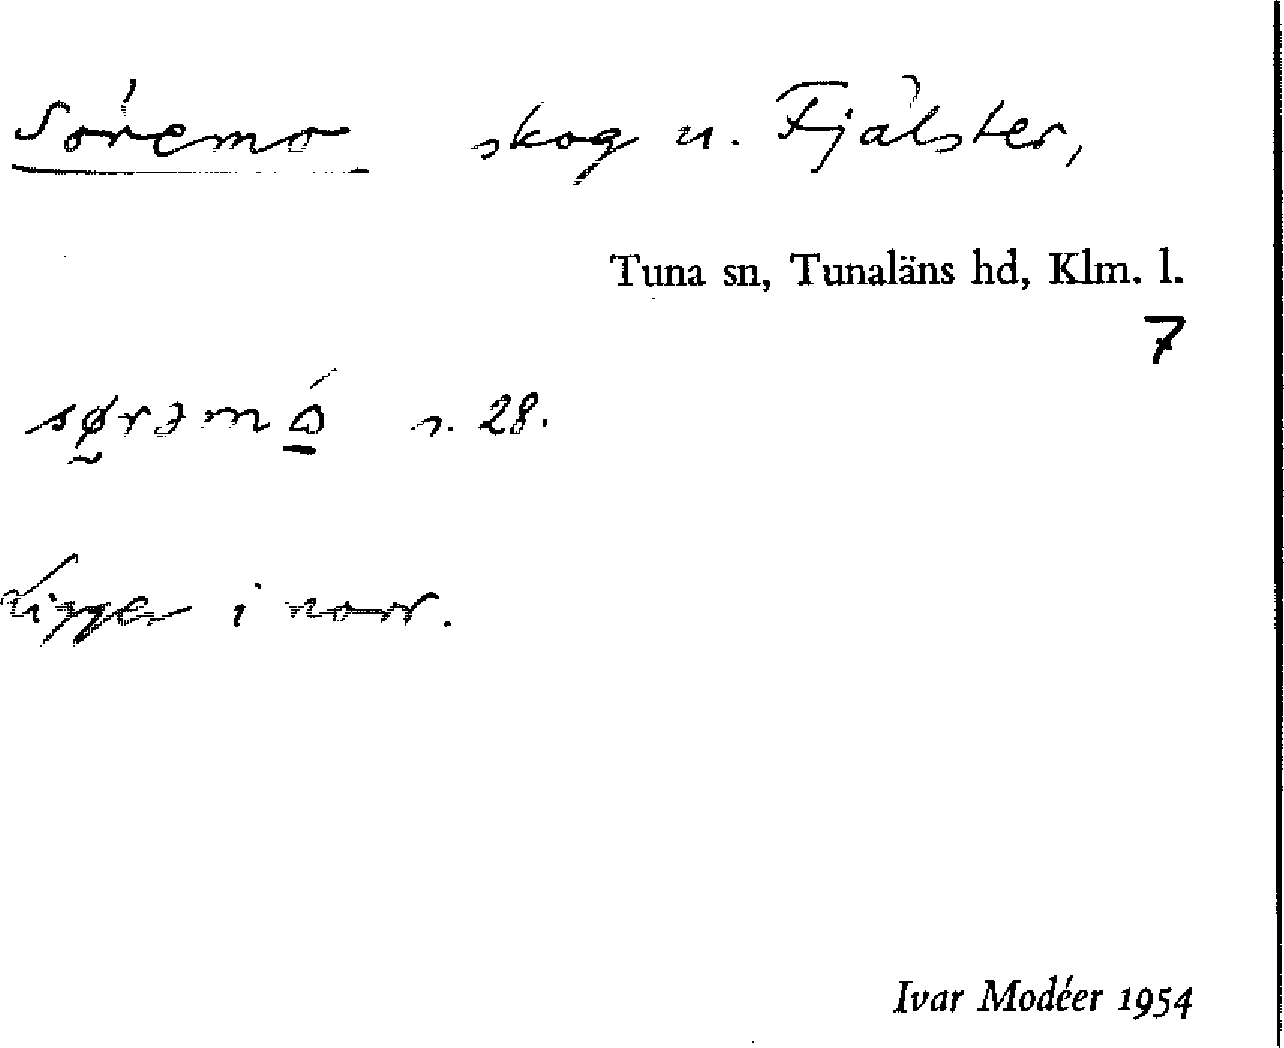 Söremo skog u. Fjälster,
Tuna sn, Tunaläns hd, Klm. l.
7
sø̰rəmó̲ s. 28.
Ligger i norr.
Ivar Modéer 1954